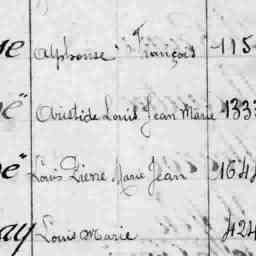 Alphonse François 115
Aristide Louis Jean Marie 1333
Louis Pierre Marie Jean 164
ay Louis Marie 424